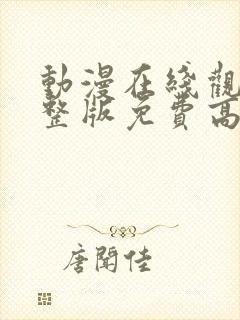 動漫在綫觀
整版免費高
唐聞佳